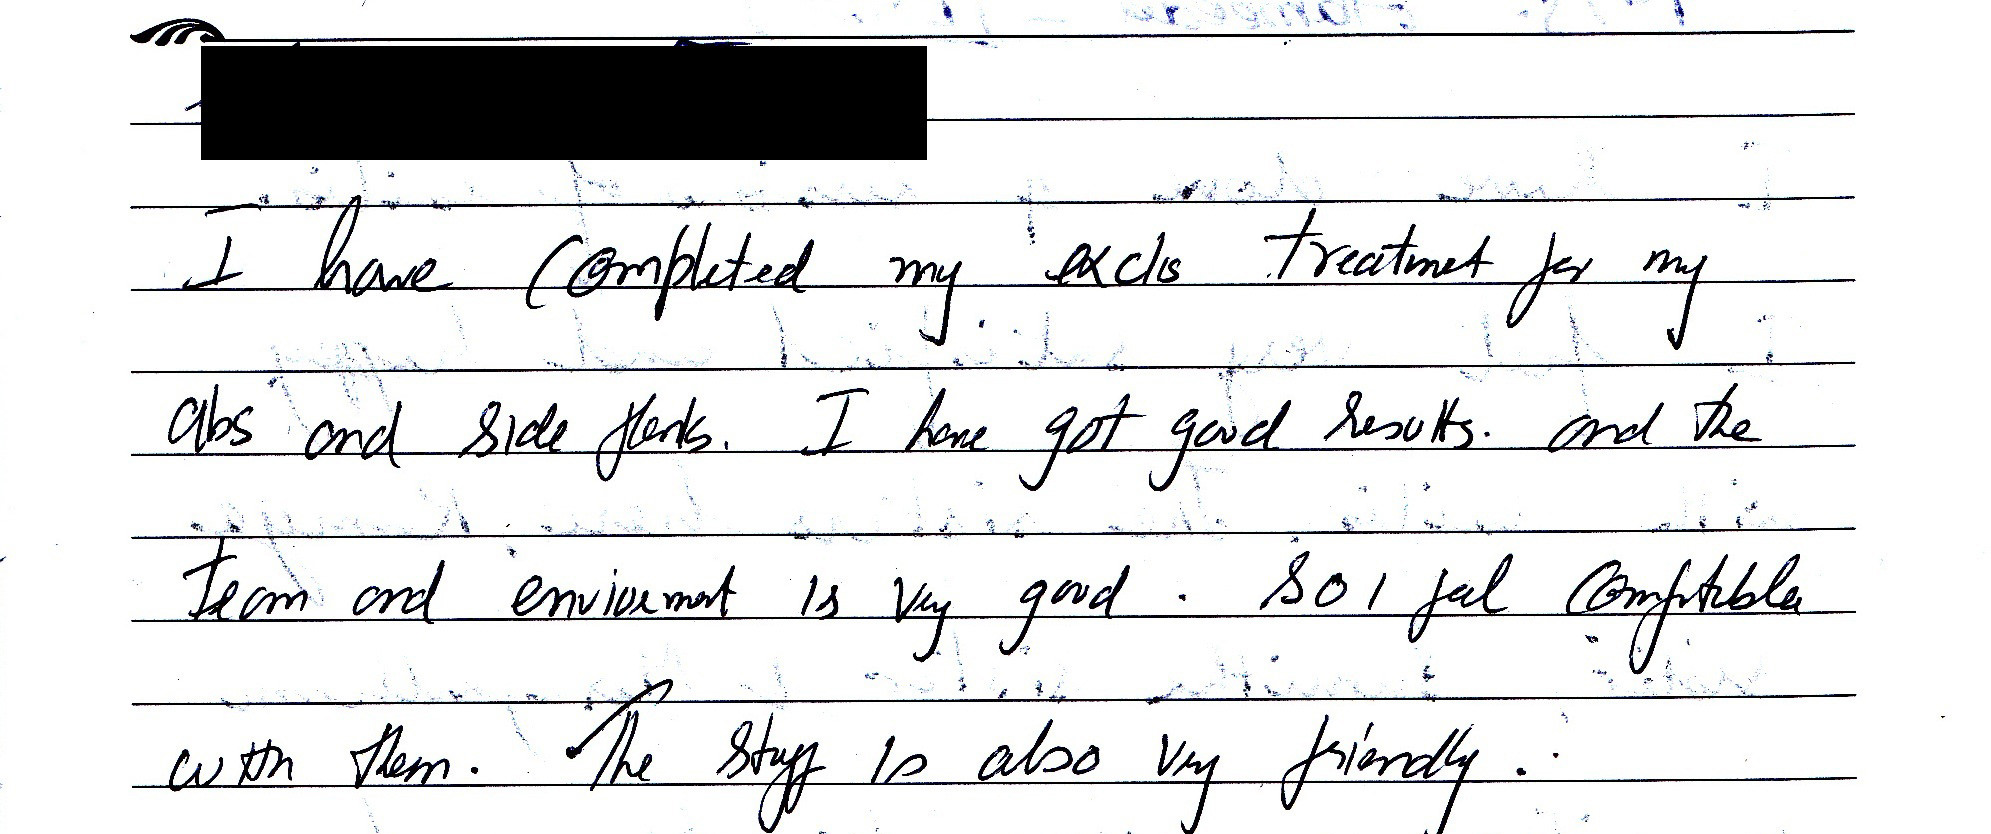 I have completed my exclis treatment for my
abs and side flanks. I have got good results. and the
team and enviorment is very good. So I feel comfortable
with them. The staff is also very friendly.